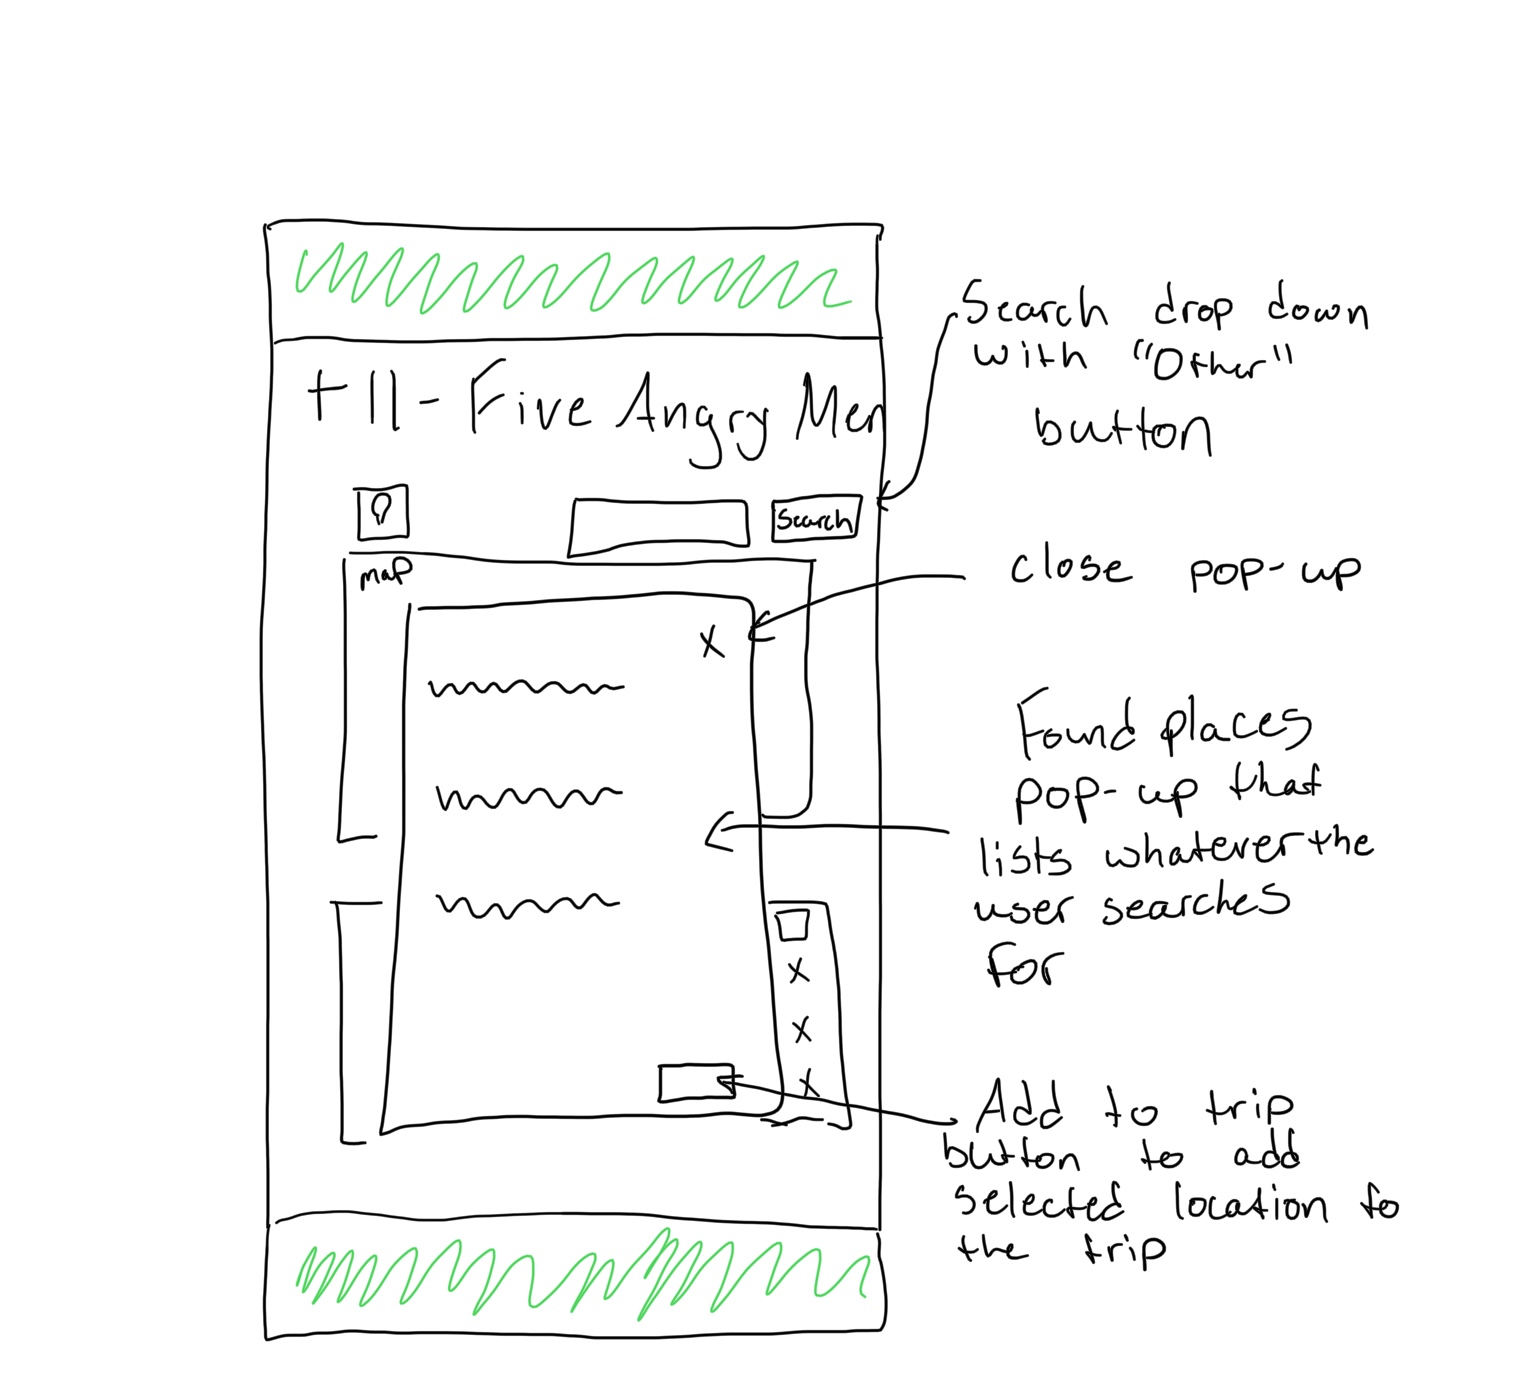 t11- Five Angry Men
Search
map
X
X
X
X
Search drop down
with "Other"
button
close pop-up
Found places
pop-up that
lists whatever the
user searches
for
Add to trip
button to add
selected location to
the trip